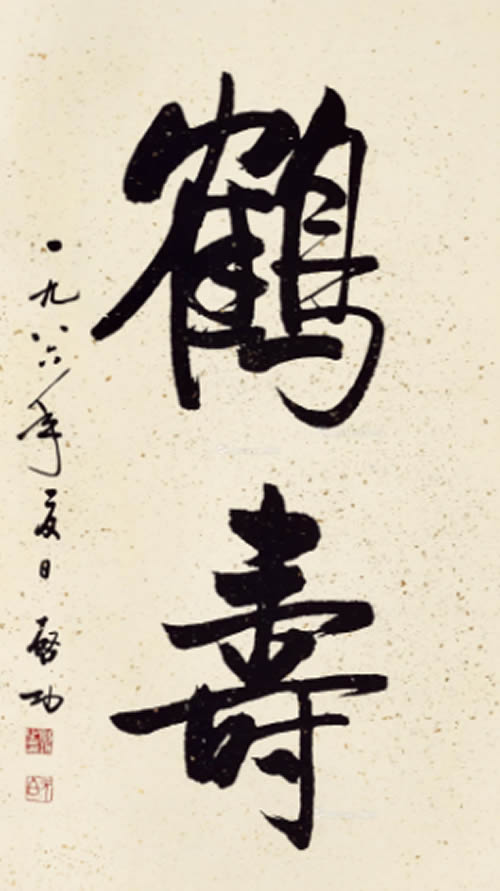 鶴壽
一九八六年夏日
啓功